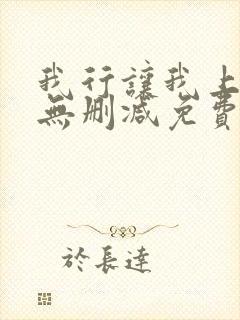 我行讓我上
無刪減免費
於長達